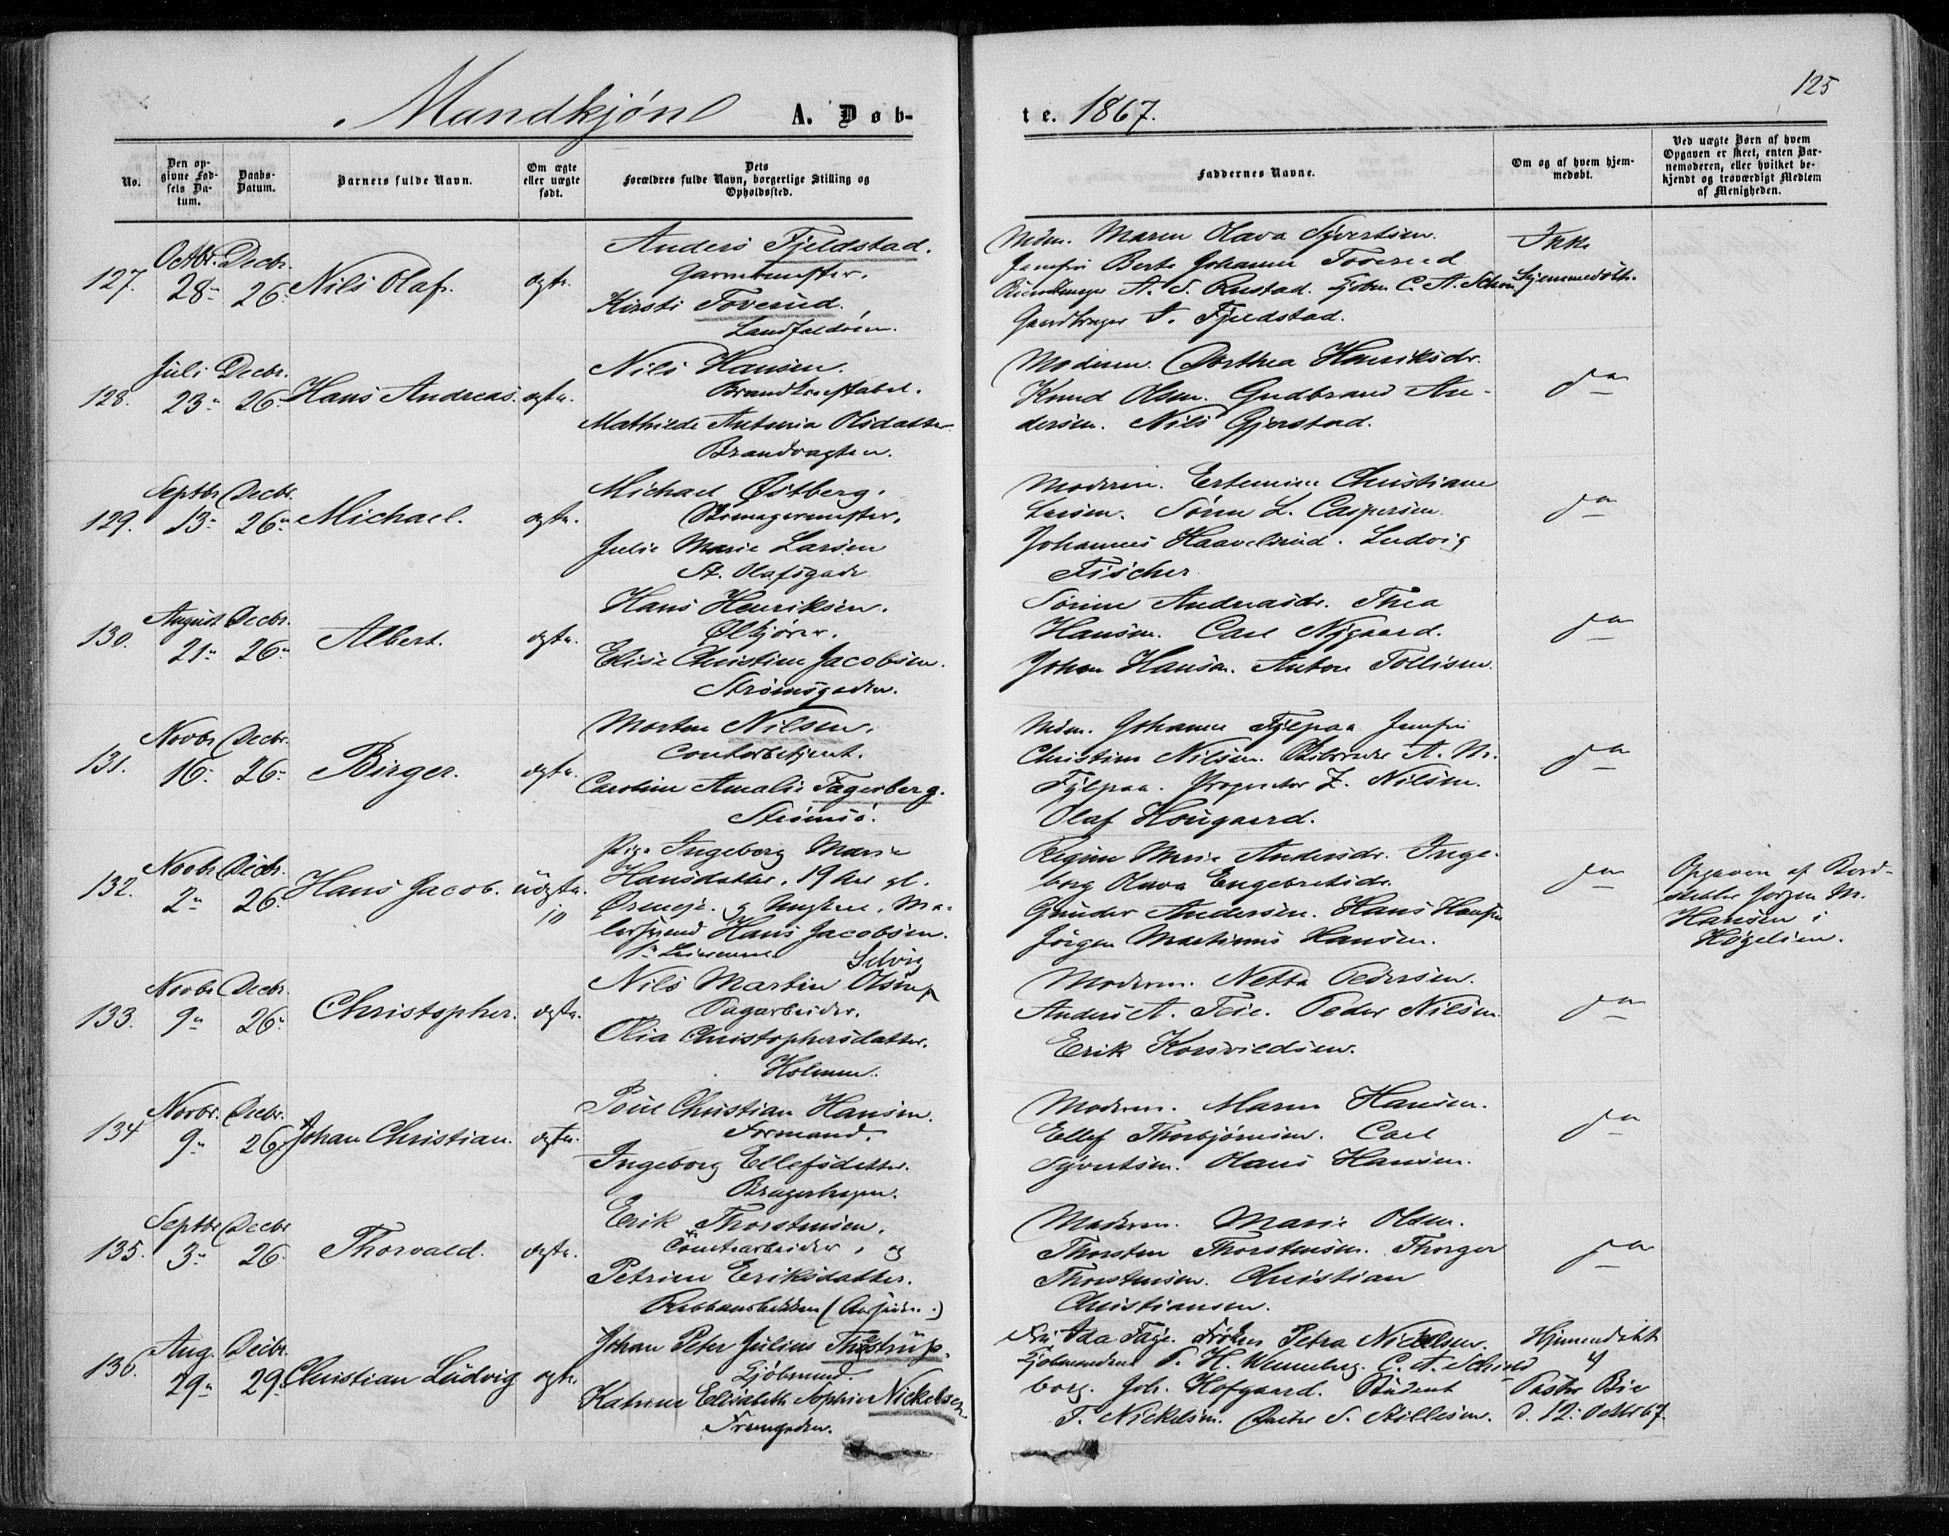 125
Mandkjøn A. Døb-
te. 1867.
No.
Den op-
givne Fød-
sels Da-
tum.
Daabs-
Datum.
Barnets fulde Navn.
Om ægte
eller uægte
født.
Dets
Forældres fulde Navn, borgerlige Stilling og
Opholdssted.
Faddernes Navne.
Om og af hvem hjem-
medøbt.
Ved uægte Børn af hvem
Opgaven er skeet, enten Bar-
nemoderen, eller hvilket be-
kjendt og troværdigt Medlem
af Menigheden.
127. Octbr. 28 Decbr. 26 Nils Olaf. ægte.
Anders Fjeldstad.
Garvermester.
Kirsti Toverud.
Landfaldøen.
Mdm. Maren Olava Syvertsen.
Jomfru Berte Johanne Toverud
A. S. Rustad. C. A. Schou
Gaardbruger J. Fjeldstad.
Ikke
hjemmedøbt.
128. Juli 23 Decbr. 26 Hans Andreas. ægte.
Nils Hansen.
Brandkonstabel.
Mathilde Antonia Olsdatter
Brandvagten.
Moderen. Dorthea Henriksdr.
Knud Olsen. Gudbrand An-
dersen. Nils Gjerstad.
Ja
129. Septbr 13 Decbr. 26 Michael. ægte.
Michael Østberg.
Skomagermester.
Julie Marie Larsen
St. Olafsgade
Moderen. Christiane
Larsen. Søren L. Caspersen.
Johannes Haavelsrud. Ludvig
Fischer
Ja
130. August 21 Decbr. 26 Albert. ægte.
Hans Henriksen.
Ølkjører.
Elise Christine Jacobsen.
Strømsgaden.
Sørine Andreasdr. Thea
Hansen. Carl Nygaard.
Johan Hansen. Anton Tollisen.
Ja
131. Novbr 16 Decbr. 26 Birger. ægte.
Morten Nilsen.
Contorbetjent.
Caroline Amalie Fagerberg.
Strømsø.
Mdm. Johanne Fylpaa Jomfru
Christine Nilsen. A. M.
Fylpaa. Proprietær Z. Nilsen.
Olaf Hougaard.
Ja
132. Novbr 2 Decbr. 26 Hans Jacob. uægte. 10
Pige Ingeborg Marie
Hansdatter, 19 Aar gl.
og Ungkarl, Ma-
lersvend Hans Jacobsen.
Regine Marie Andersdr. Inge-
borg Olava Engebretsdr.
Gunder Andersen. Hans Hansen
Jørgen Martinus Hansen.
Ja
Opgaven af Bord-
stabler Jørgen M.
Hansen i
133. Novbr 9 Decbr. 26 Christopher. ægte.
Selvig
Nils Martin Olsen
Dagarbeider.
Olia Christophersdatter.
Holmen.
Moderen. Netta Pedersen.
Anders A. Peder Nilsen
Erik Korsvoldsen.
Ja
134 Novbr. 9 Decbr. 26 Johan Christian. ægte.
Poul Christian Hansen.
Formand.
Ingeborg Ellefsdatter.
Bragerhagen.
Moderen. Maren Hansen.
Ellef Thorbjørnsen. Carl
Syvertsen. Olaus Hansen.
Ja
135. Septbr 3 Decbr 26 Thorvald. ægte.
Erik Thorstensen.
og
Petrine Eriksdatter.
Moderen. Marie Olsen.
Thorsten Thorstensen. Thorger
Thorstensen. Christian
Christiansen.
Ja
136. Aug. 29 Decbr. 29 Christian Ludvig ægte.
Johan Peter Julius Thostrup.
Kjøbmand.
Katrine Elisabeth Sophie Nickelsen
Fru Ida Frøken Petra Nickelsen.
Kjøbmændene S. H. Wenneberg. C. A.
borg. Joh. Hofgaard. Student
T. Nickelsen. S. Stillesen.
Hjemmedøbt
af
Pastor Bie
d. 12. Octbr 67.